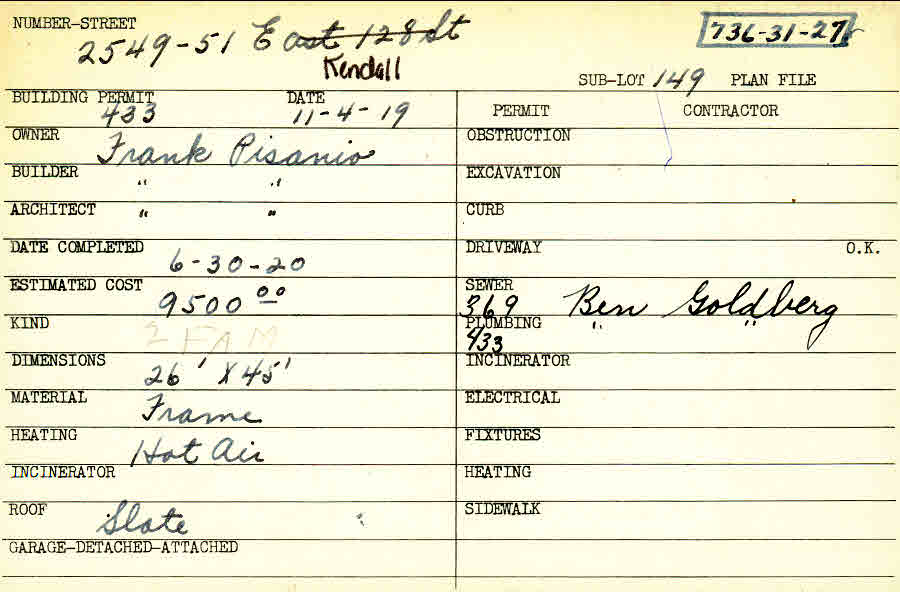 NUMBER-STREET
2549-51 East 128 St
Kendall
736-31-27
SUB-LOT 149 PLAN FILE
BUILDING PERMIT DATE
433 11-4-19
PERMIT CONTRACTOR
OWNER Frank Pisanio
OBSTRUCTION
BUILDER " "
EXCAVATION
ARCHITECT " "
CURB
DATE COMPLETED 6-30-20
DRIVEWAY O.K.
ESTIMATED COST 9500 00
SEWER
369 Ben Goldberg
KIND 2 FAM
PLUMBING " "
433
DIMENSIONS 26' X 45'
INCINERATOR
MATERIAL Frame
ELECTRICAL
HEATING Hot Air
FIXTURES
INCINERATOR
HEATING
ROOF Slate
SIDEWALK
GARAGE-DETACHED-ATTACHED